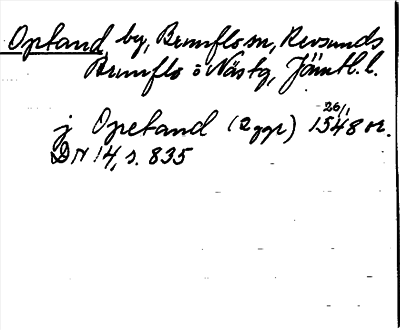 Opland, by, Brunflo sn, Revsunds
Brunflo o Näs tg, Jämtl. l.
j Opeland (2 ggr) 26/1 1548 or.
DN 14, s. 835